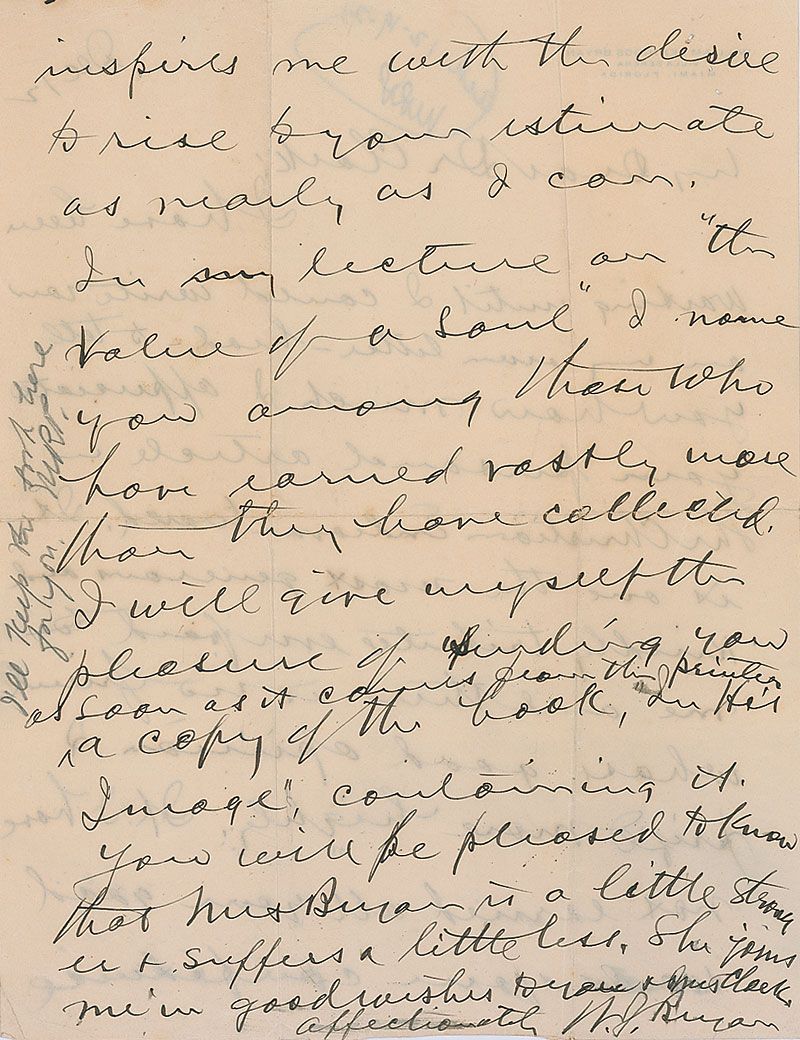 inspires me with the desire
to rise to your estimate
as nearly as I can.
In my lecture on "the
value of a soul" I name
you among those who
have earned vastly more
than they have collected.
I will give myself the
pleasure of sending you
as soon as it comes from the printer
a copy of the book, "In His
Image", containing it.
You will be pleased to know
that Mrs Bryan is a little strong
er & suffers a little less. She joins
me in good wishes to you & Mrs Clark.
affectionately W. J. Bryan
I'll keep the book here
for you.